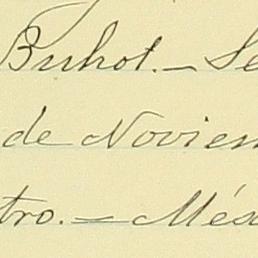 Buhot.— Se
de Noviem
tro.— Méx